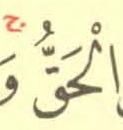 الْحَقُّ ۚ وَ